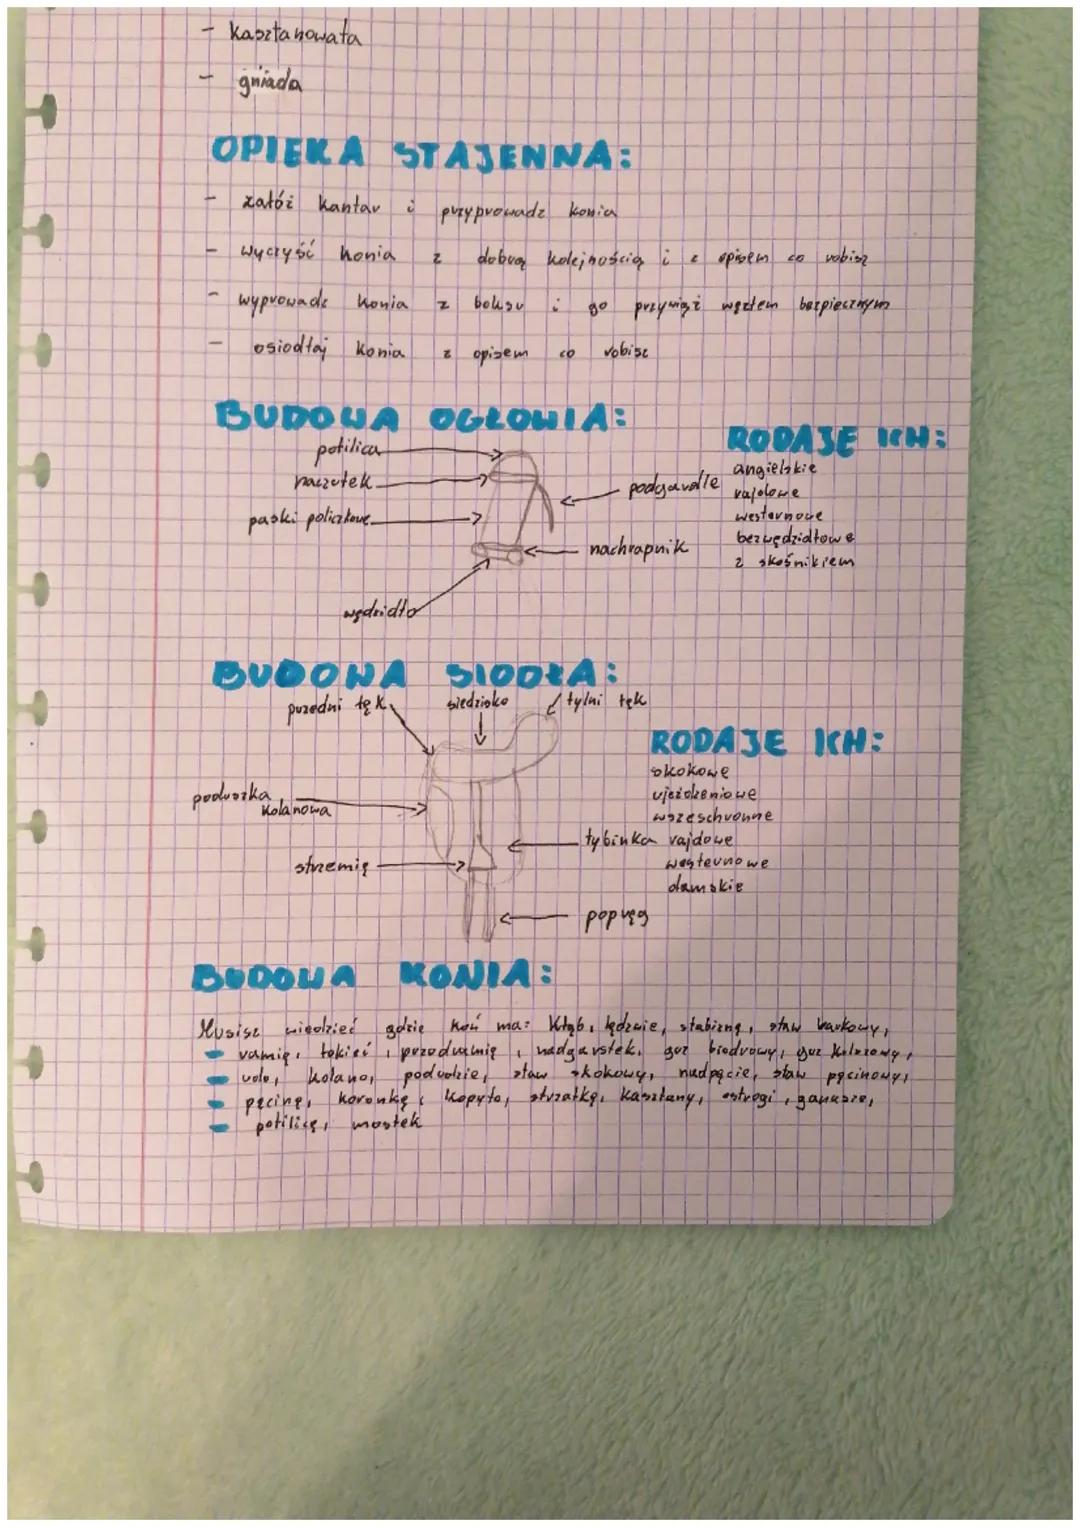 - kasztanowata
- gniada
OPIEKA STAJENNA:
- załóż kantar i przyprowadź konia
- wyczyść konia z dobrą kolejnością i z opisem co robisz
- wyprowadź konia z boksu i go przywiąż węzłem bezpiecznym
- osiodłaj konia z opisem co robisz
BUDOWA OGŁOWIA:
potilica
naczółek
paski policzkowe
wędzidło
podgardle
nachrapnik
RODAJE ICH:
angielskie
rajdowe
westernowe
bezwędzidłowe
z skośnikiem
BUDOWA SIODŁA:
przedni łęk
siedzisko
tylni łęk
poduszka kolanowa
strzemię
tybinka
popręg
RODAJE ICH:
skokowe
ujeżdżeniowe
wszeschronne
rajdowe
westernowe
damskie
BUDOWA KONIA:
Musisz wiedzieć gdzie koń ma: kłąb, lędzwie, słabiznę, staw barkowy,
ramię, łokieć, przedramię, nadgarstek, guz biodrowy, guz kulszowy,
udo, kolano, podudzie, staw skokowy, nadpęcie, staw pęcinowy,
pęcinę, koronkę, kopyto, strzałkę, kasztany, ostrogi, ganasze,
potilicę, mostek